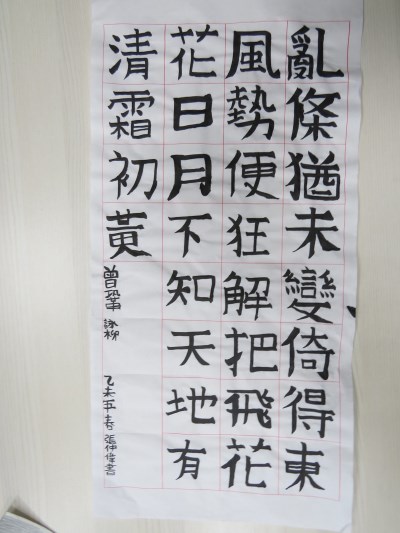 亂條猶未變倚得東
風勢便狂解把飛花
花日月不知天地有
清霜初黃
曾鞏 詠柳
乙未年春 張仲偉書